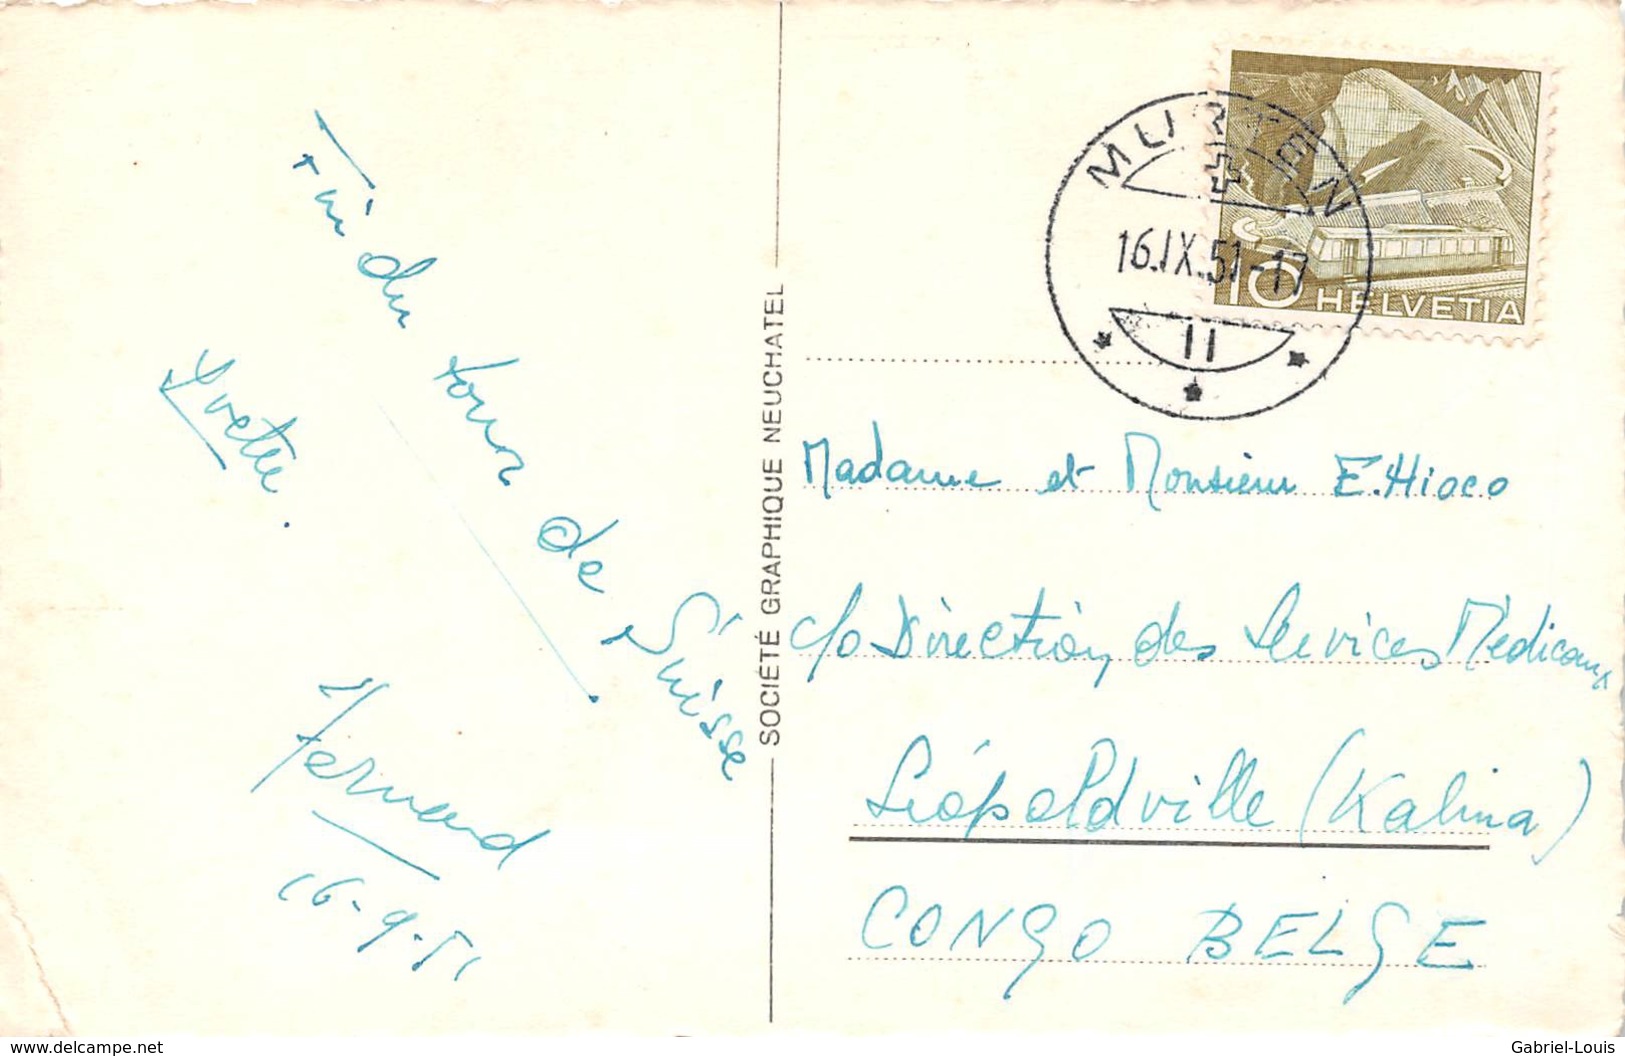 Fin du tour de Suisse
Yvette.
Fernand
16-9-51
SOCIÉTÉ GRAPHIQUE NEUCHATEL
MURTEN
16.IX.51-17
11
10 HELVETIA
Madame et Monsieur E. Hioco
c/o Direction des Services Médicaux
Léopoldville (Kalina)
CONGO BELGE
www.delcampe.net
Gabriel-Louis